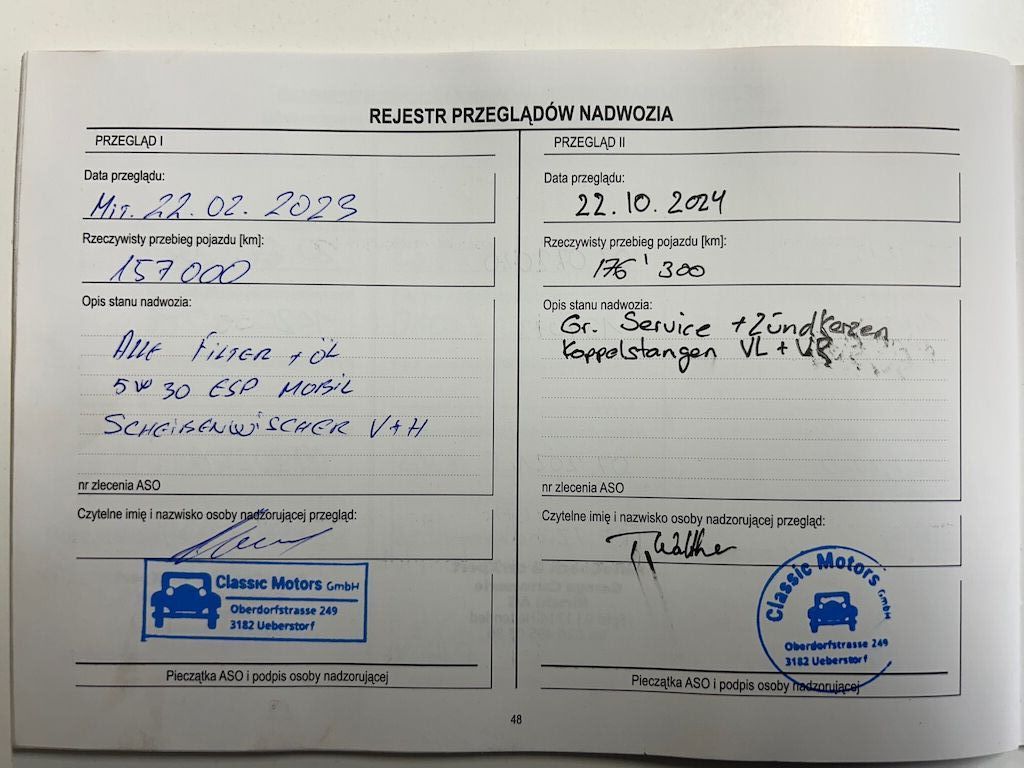 REJESTR PRZEGLĄDÓW NADWOZIA
PRZEGLĄD I
Data przeglądu:
Mit. 22.02.2023
Rzeczywisty przebieg pojazdu [km]:
157000
Opis stanu nadwozia:
ALLE FILTER + ÖL
5W30 ESP MOBIL
SCHEIBENWISCHER V+H
nr zlecenia ASO
Czytelne imię i nazwisko osoby nadzorującej przegląd:
Classic Motors GmbH
Oberdorfstrasse 249
3182 Ueberstorf
Pieczątka ASO i podpis osoby nadzorującej
PRZEGLĄD II
Data przeglądu:
22.10.2024
Rzeczywisty przebieg pojazdu [km]:
176'300
Opis stanu nadwozia:
Gr. Service + Zündkerzen
Koppelstangen VL + VR
nr zlecenia ASO
Czytelne imię i nazwisko osoby nadzorującej przegląd:
Walther
Classic Motors GmbH
Oberdorfstrasse 249
3182 Ueberstorf
Pieczątka ASO i podpis osoby nadzorującej
48